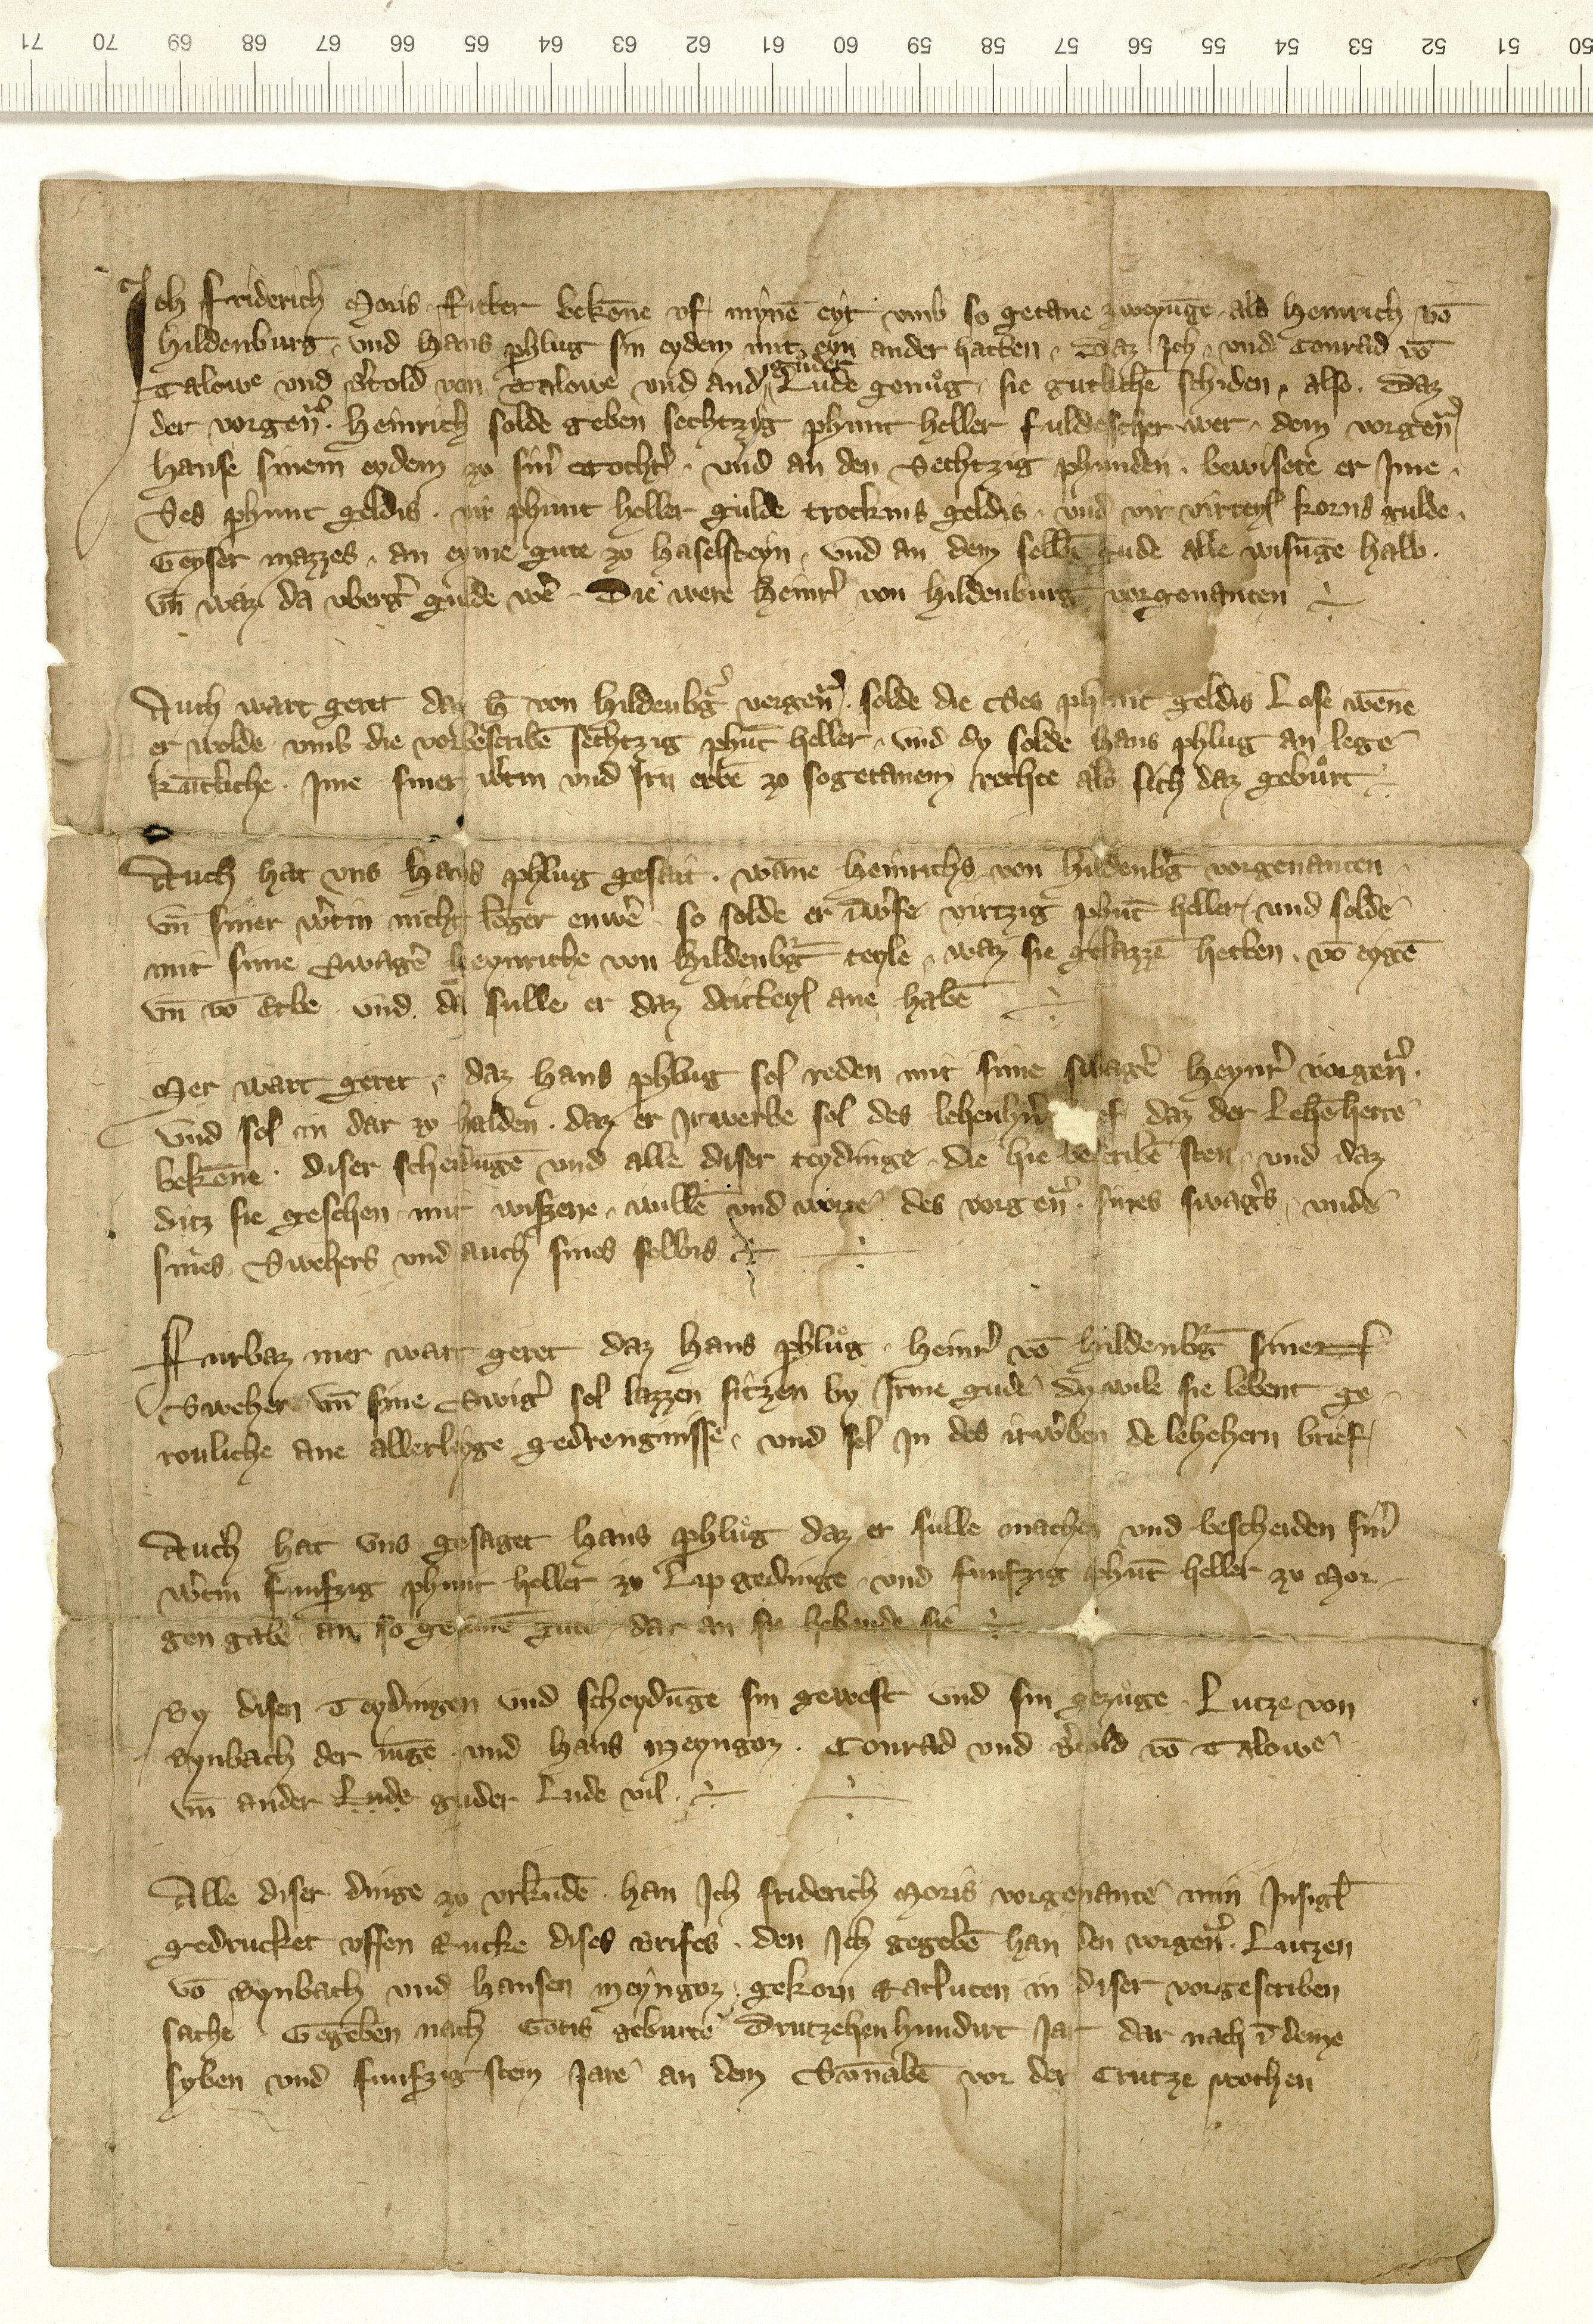 71 70 69 68 67 66 65 64 63 62 61 60 59 58 57 56 55 54 53 52 51 50
Ich Friderich Moris Ritter bekēne uf mynē eyt umb so getane zweyūge als Heinrich vō
Hildenburg und Hans phlug sin eydem mit eyn ander hatten. Daz Ich und Conrad vō
guder
Talowe und Bˀtold von Talowe und andˀ Lude genuͦg sie gutlichē schiden also. Daz
der vorgen̄ˀ. Heinrich solde geben sechtzig phunt heller fuldescher wer dem vorgen̄ˀ
Hanse sinem eydem zo sinˀ Tochtˀ. und an den Sechtzig phunden. bewisete er Ime.
Ses phunt geldis. vir phunt heller gulde trockins geldis. und vir virteyl korns gulde.
Geyser mazzes. an eyme gute zo Haselsteyn. und an dem selbē gude alle wisūge halb.
un̄ waz da ubergˀ gulde wēˀ. Die were Heinrˀ von Hildenburg vorgenanten
Auch wart geret daz H̄ von Hildenbgˀ vorgen̄ˀ. solde die Ses phunt geldis Lose wēne
er wolde umb die vorbescribē sechtzig phūt heller. und dy solde Hans phlug an legē
kūtliche. Ime siner wˀtin und Irn erbē zo sogetanem rechte als sich daz gebuͦrt
Auch hat uns Hans phlug gesait. wāne Heinrichs von Hildenbˀg vorgenanten
un̄ siner wˀtin nicht lēger enwēˀ so solde er īwˀfē virtzig phūt heller und solde
mit sime Swagēˀ Heynriche von Hildenbˀg teyle. waz sie gelazzē hetten. vō eygē
un̄ vō Erbe. und. da sulle er daz dritteyl ane habē
Mer wart geret. daz Hans phlug sol reden mit sime swagēˀ Heynrˀ vorgen̄ˀ.
und sol in dar zo halden. daz er Irwerbe sol des lehenhˀn ef daz der Lehēherre
bekēne. diser scheidūgē und alle diser teydinge. die hie bescribē sten. und daz
ditz sie geschen mit wiszene. willē und worte des vorgen̄ˀ. sines swagˀs. unde
sines Swehers und auch sines selbis
Furbaz mer wart geret daz Hans phluͦg. Heinrˀ vō Hildenbˀg siner
Sweher un̄ sine Swigˀ sol lazzen sitzen by Irme gude dy wile sie lebent ge
rouliche ane allerleyge gedrengnisse. und sol In des irwˀben de lehehern brief
Auch hat uns gesaget Hans phluͦg daz er sulle machen und bescheiden sinˀ
wˀtin funfzig phunt heller zo Lipgedinge. und funfzig phūt heller zo Mor
gen gabē an so getanē gute. dar an sie hebende sie
By disen Teydingen und scheydūge sin gewest und sin gezuͦge. Lutze von
Bynbach der iūge. und Hans Meyngoz. Conrad und Bˀtold vō Talowe
un̄ ander Lude guder Lude vil.
Alle diser dinge zo urkūde. han Ich Friderich Moris vorgenante min Insigˀl
gedrucket uffen Rucke dises Brifes. den Ich gegebē han den vorgen̄ˀ. Lutzen
vō Bynbach und Hansen Meyngoz. gekorn Ratluten in diser vorgescriben
sache. Gegeben nach Gotis geburte Drutzehenhundirt Jar dar nach ī deme
syben und funfzigstem Jare an dem Sūnabē vor der Crutze wochen